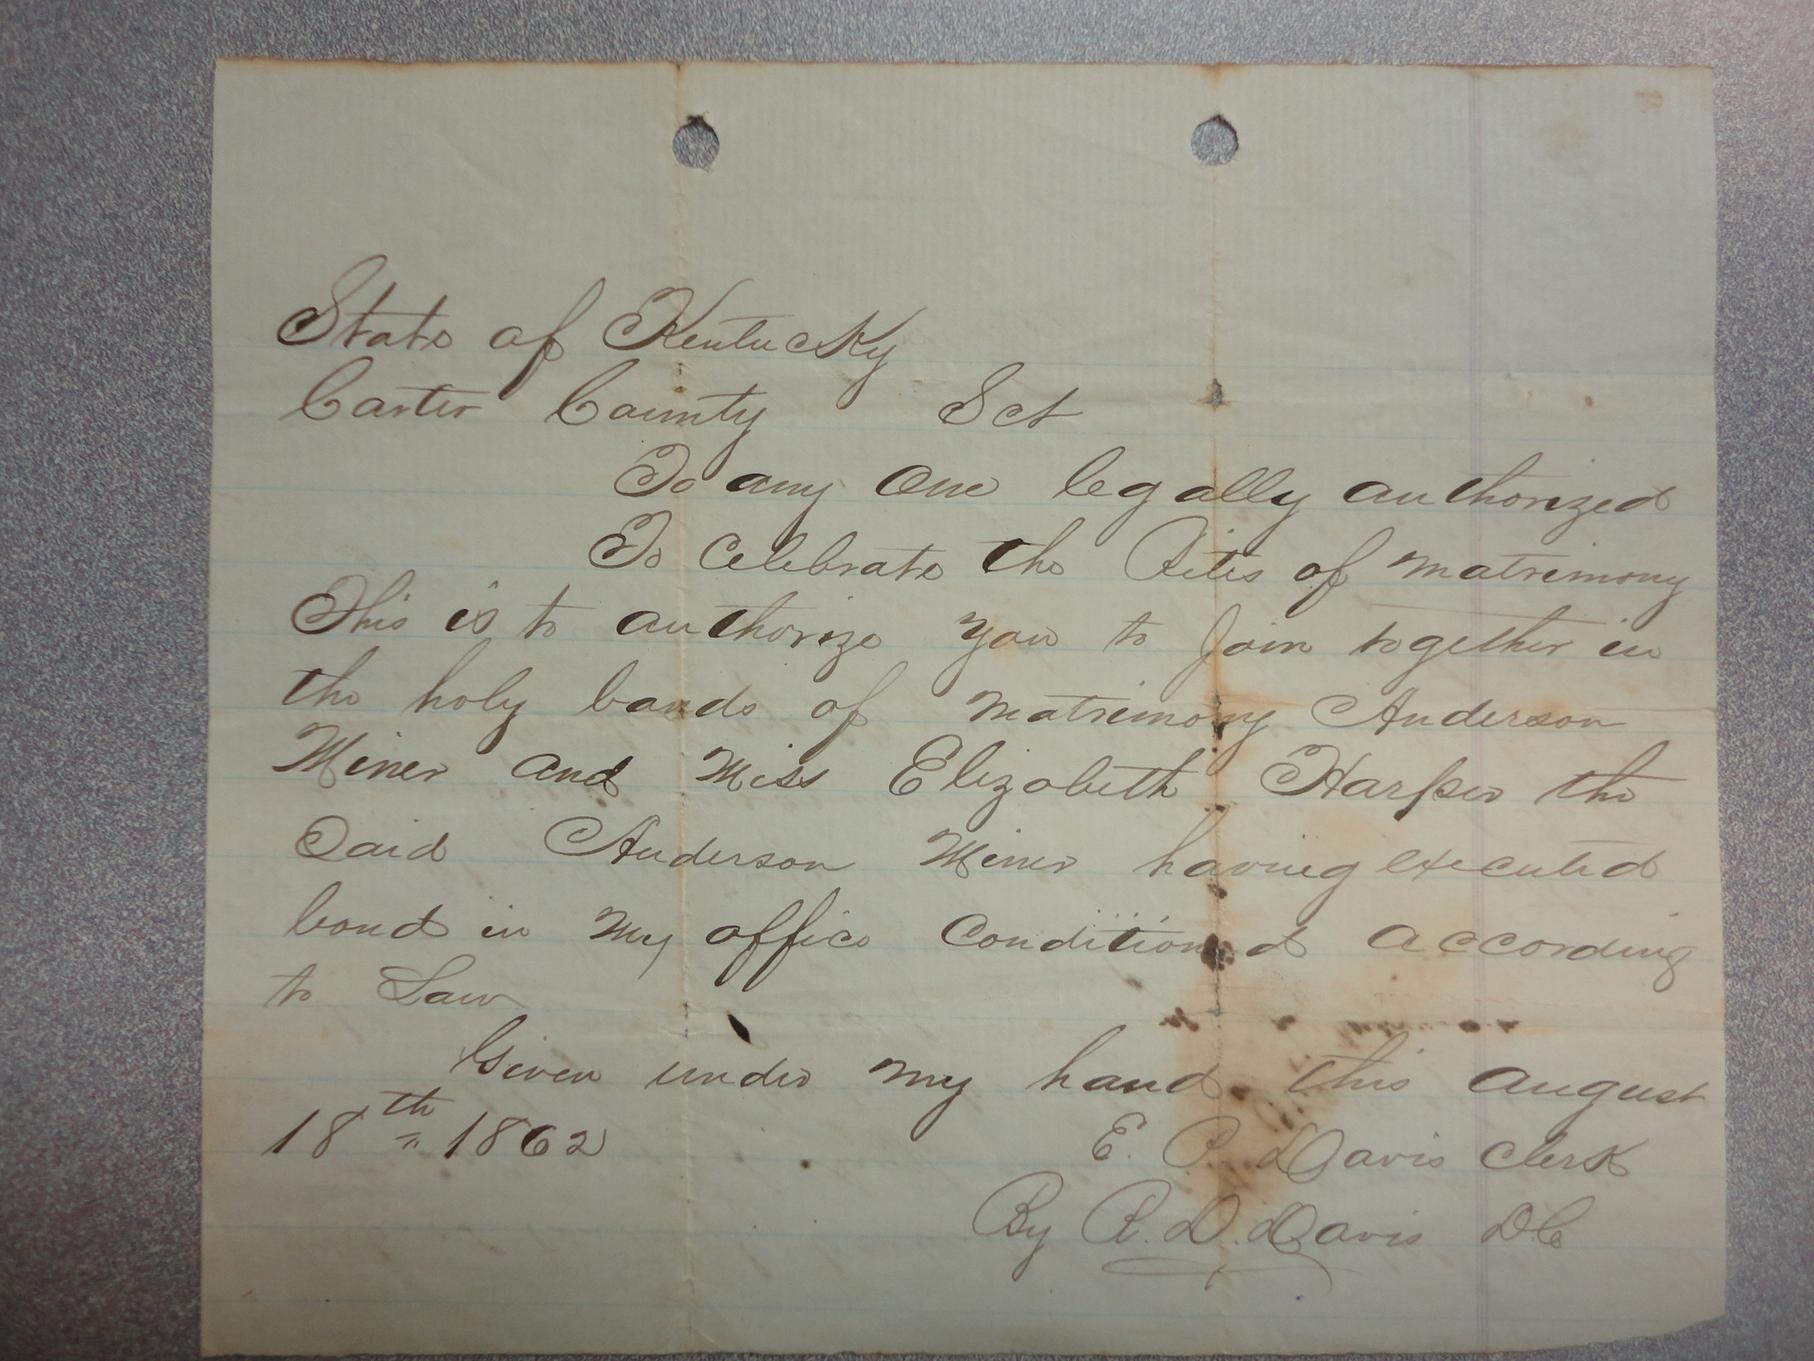 State of Kentucky
Carter County Sct
To any one legally authorized
To Celebrate the Rites of matrimony
This is to authorize you to Join together in
the holy bands of matrimony Anderson
Miner and Miss Elizabeth Harper the
Said Anderson Miner having executed
bond in my office Conditioned according
to Law
Given under my hand this august
18th 1862
E. P. Davis Clerk
By R. D. Davis D.C